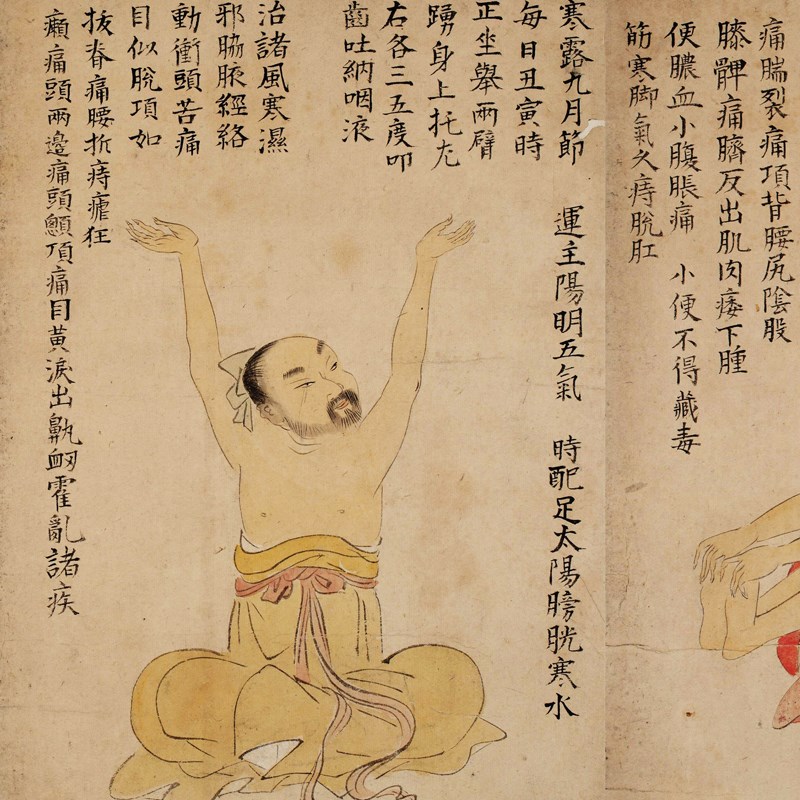 痛腨裂痛項背腰尻陰股
膝髀痛臍反出肌肉痿下腫
便膿血小腹脹痛 小便不得藏毒
筋寒脚氣久痔脫肛
寒露九月節 運主陽明五氣 時配足太陽膀胱寒水
每日丑寅時
正坐舉兩臂
踴身上托左
右各三五度叩
齒吐納咽液
治諸風寒濕
邪脇腋經絡
動衝頭苦痛
目似脫項如
拔脊痛腰折痔瘧狂
癲痛頭兩邊痛頭顖頂痛目黃淚出鼽衂霍亂諸疾